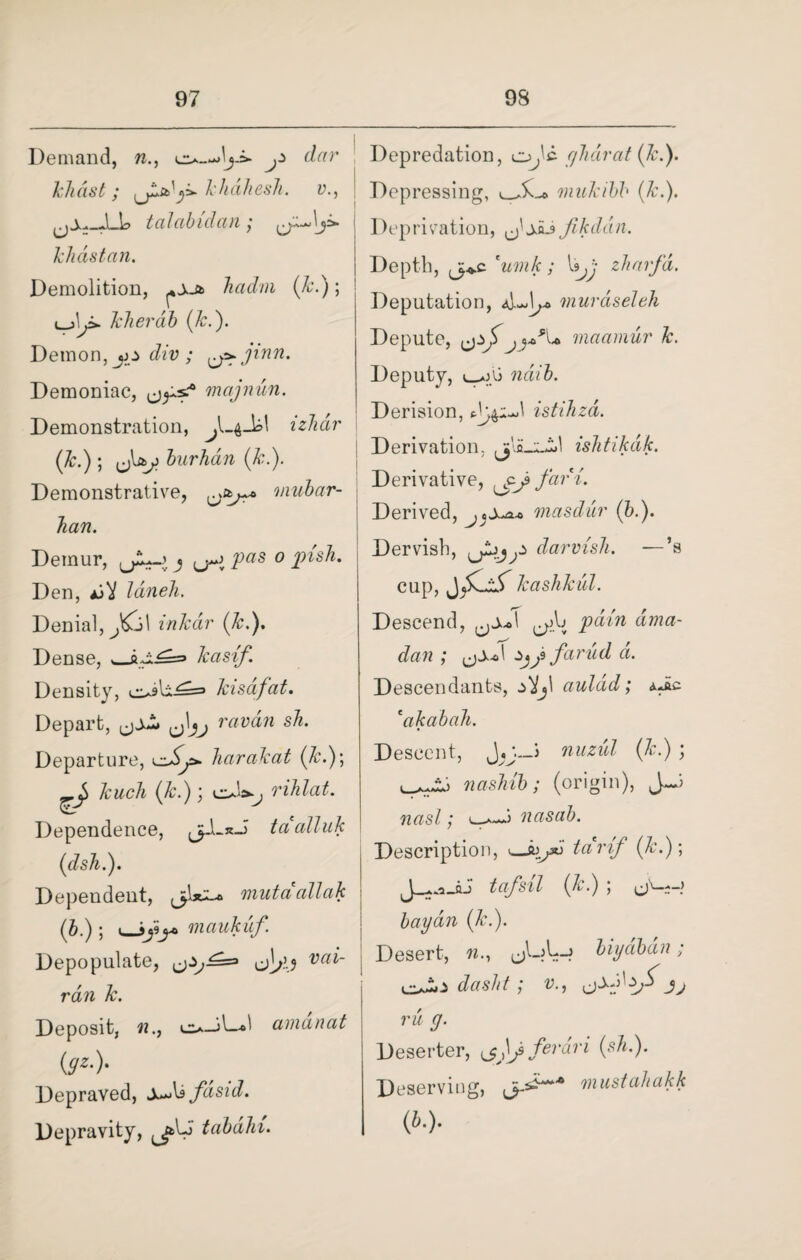 97
Demand, n., درخواست dar
khást; خواهش kháhesh. v.,
طلبیدن talabídan; خواستن
khástan.
Demolition, هدم hadm (k.);
خراب kheráb (k.).
Demon, دیو div; جن jinn.
Demoniac, مجنون majnún.
Demonstration, اظهار izhár
(k.); برهان burhán (k.).
Demonstrative, مبرهن mubar-
han.
Demur, پس و پیش pas o písh.
Den, لانه láneh.
Denial, انکار inkár (k.).
Dense, کثیف kasíf.
Density, کثافت kisáfat.
Depart, روان شدن raván sh.
Departure, حرکت harakat (k.);
کوچ kuch (k.); رحلت rihlat.
Dependence, تعلق ta'alluk
(dsh.).
Dependent, متعلق muta'allak
(b.); موقوف maukúf.
Depopulate, ویران کردن vai-
rán k.
Deposit, n., امانت amánat
(gz.).
Depraved, فاسد fásid.
Depravity, تباهی tabáhí.
98
Depredation, غارت ghárat (k.).
Depressing, مکب mukibb (k.).
Deprivation, فقدان fikdán.
Depth, عمق 'umk; ژرفا zharfá.
Deputation, مراسله muráseleh
Depute, مأمور کردن maamúr k.
Deputy, نایب náib.
Derision, استهزاء istihzá.
Derivation, اشتقاق ishtikák.
Derivative, فرعی far'í.
Derived, مصدور masdúr (b.).
Dervish, درویش darvísh. —'s
cup, کشکول kashkúl.
Descend, پایین آمدن páín áma-
dan; فرود آمدن farúd á.
Descendants, اولاد aulád; عقبه
'akabah.
Descent, نزول nuzúl (k.);
نشیب nashíb; (origin), نسل
nasl; نسب nasab.
Description, تعریف ta'ríf (k.);
تفصیل tafsíl (k.); بیان
bayán (k.).
Desert, n., بیابان biyábán;
دشت dasht; v., رو گردانیدن
rú g.
Deserter, فراری ferárí (sh.).
Deserving, مستحق mustahakk
(b.).